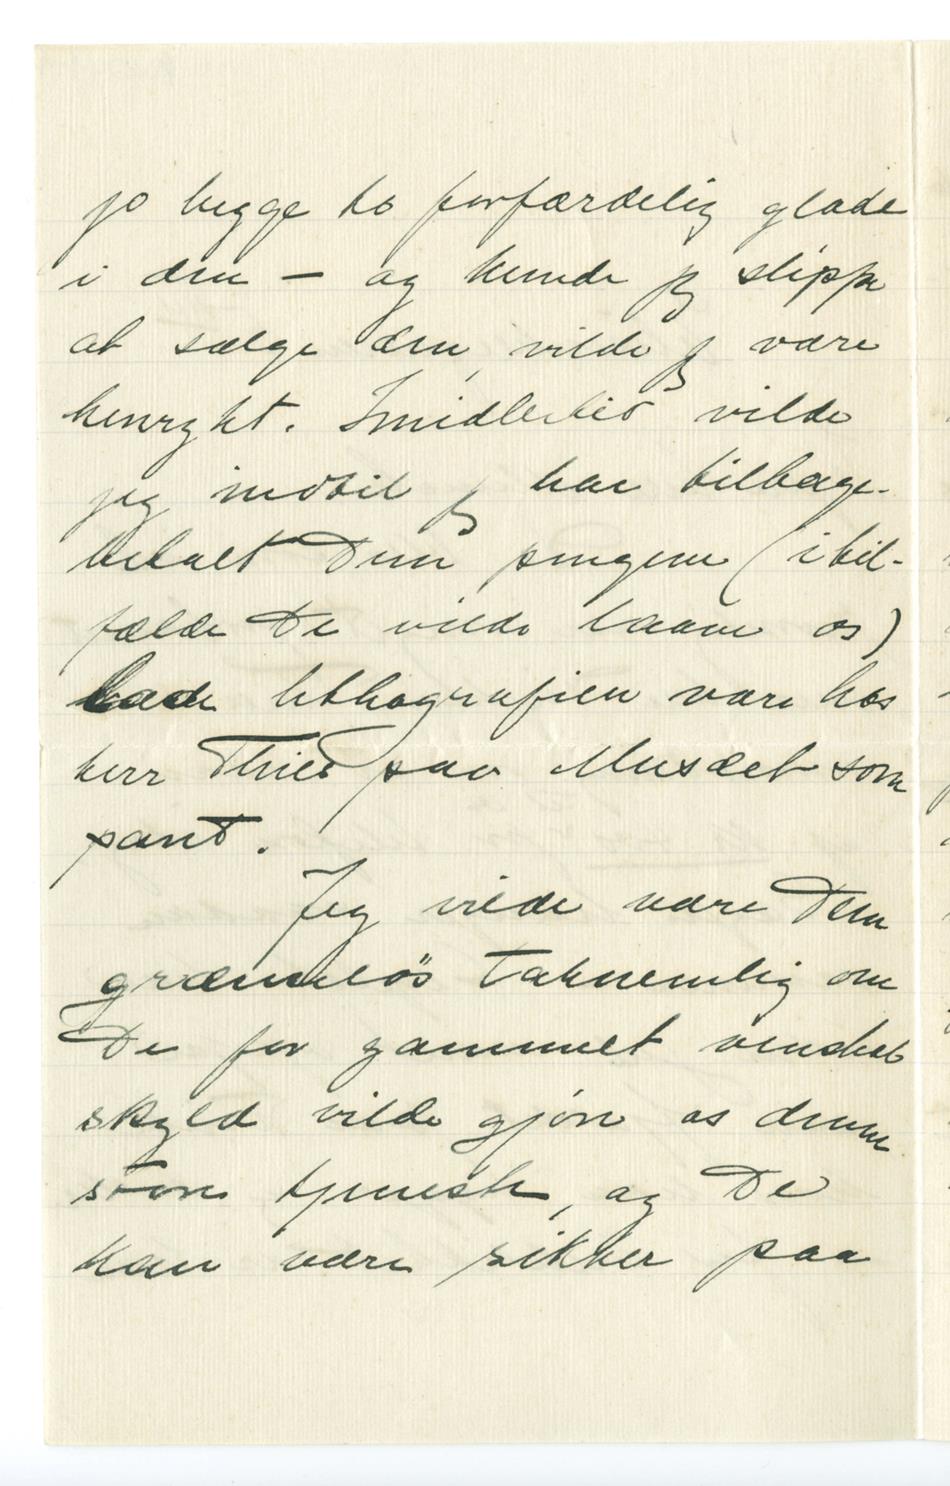 jo begge to forfærdelig glade
i den – og kunde jeg slippe
at sælge den, vilde jeg være
henrykt. Imidlertid vilde
jeg indtil jeg har tilbage-
betalt Dem pengene (i til-
fælde De vilde laane os)
lade lithografien være hos
herr Thiis paa Musæet som
pant.
Jeg vilde være Dem
grænseløs taknemlig om
De for gammelt venskab
skyld vilde gjøre os denne
store tjeneste, og De
kan være sikker paa